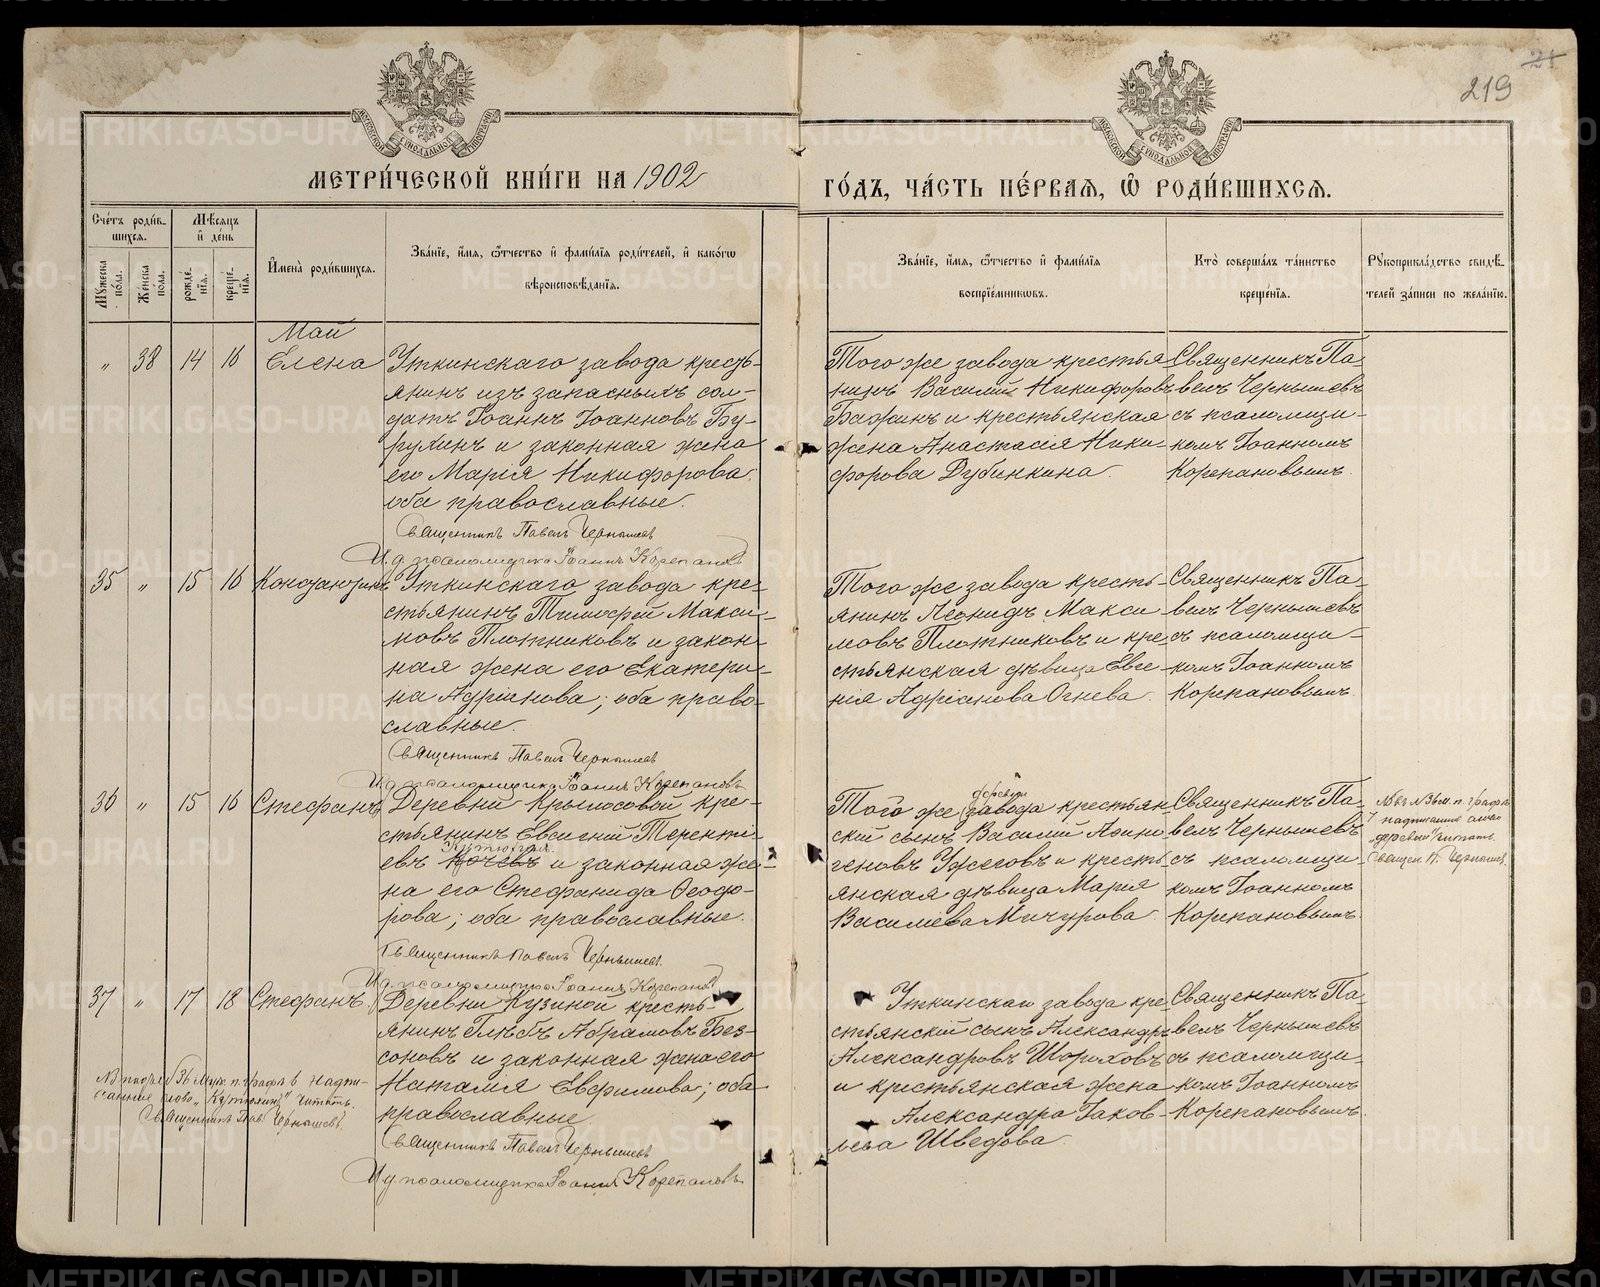 219
МЕТРИ́ЧЕСКОЙ КНИ́ГИ НА 1902
ГО́ДЪ, ЧА́СТЬ ПЕ́РВАѦ, Ѿ РОДИ́ВШИХСѦ.
Сче́тъ роди́в-
шихсѧ.
Мꙋжеска по́ла.
Же́нска по́ла.
Мѣ́сѧцъ
и де́нь
рожде́-
нїѧ.
креще́-
нїѧ.
И҆мена̀ роди́вшихсѧ.
Зва́нїе, и҆́мѧ, ѻ҆́тчество и҆ фами́лїѧ роди́телей, и҆ како́гѡ
вѣроисповѣ́данїѧ.
Зва́нїе, и҆́мѧ, ѻ҆́тчество и҆ фами́лїѧ
воспрїе́мниковъ.
Кто̀ соверша́лъ та́инство
креще́нїѧ.
Рꙋкоприкла́дство свидѣ́-
телей за́писи по жела́нїю.
Май
„ 38 14 16 Елена
Уткинскаго завода кресть-
янинъ изъ запасныхъ сол-
датъ Іоаннъ Іоанновъ Бу-
рухинъ и законная жена
его Марія Никифорова;
оба православные.
Священникъ Павелъ Чернышевъ
И. д. псаломщика Іоаннъ Корепановъ
Того же завода крестья-
нинъ Василий Никифоровъ
Бажинъ и крестьянская
жена Анастасія Ники-
форова Дубинкина.
Священникъ Па-
велъ Чернышевъ
съ псаломщи-
комъ Іоанномъ
Корепановымъ.
35 „ 15 16 Константинъ
Уткинскаго завода кре-
стьянинъ Тимофей Макси-
мовъ Плотниковъ и закон-
ная жена его Екатери-
на Адріанова; оба право-
славные.
Священникъ Павелъ Чернышевъ
И. д. псаломщика Іоаннъ Корепановъ
Того же завода кресть-
янинъ Леонидъ Макси-
мовъ Плотниковъ и кре-
стьянская дѣвица Евге-
нія Адріанова Огнева.
Священникъ Па-
велъ Чернышевъ
съ псаломщи-
комъ Іоанномъ
Корепановымъ.
36 „ 15 16 Стефанъ
Деревни Крылосовой кре-
стьянинъ Евсигний Теренті-
Кутюхинъ
евъ и законная же-
на его Стефанида Ѳеодо-
рова; оба православные.
Священникъ Павелъ Чернышевъ.
И. д. псаломщика Іоаннъ Корепановъ
деревни
Того же (завода) крестьян-
ский сынъ Василий Афино-
геновъ Ужеговъ и кресть-
янская дѣвица Мария
Василиева Мичурова.
Священникъ Па-
велъ Чернышевъ
съ псаломщи-
комъ Іоанномъ
Корепановымъ.
надписанное слово
„деревни“ читать.
Священ. П. Чернышевъ
37 „ 17 18 Стефанъ.
Деревни Кузиной кресть-
янинъ Глѣбъ Абрамовъ Без-
соновъ и законная жена его
Наталія Евфимова; оба
православные.
Священникъ Павелъ Чернышевъ
И. д. псаломщика Іоаннъ Корепановъ
Уткинскаго завода кре-
стьянский сынъ Александръ
Александровъ Шориховъ
и крестьянская жена
Александра Іаков-
лева Шведова.
Священникъ Па-
велъ Чернышевъ
съ псаломщи-
комъ Іоанномъ
Корепановымъ.
№ 36 муж. п. графѣ надпи-
санное слово „Кутюхинъ“ читать.
Священникъ Пав. Чернышевъ
METRIKI.GASO-URAL.RU